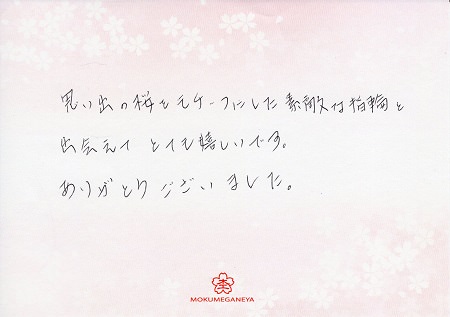 思い出の桜をモチーフにした素敵な指輪と
出会えて とても嬉しいです。
ありがとうございました。
MOKUMEGANEYA